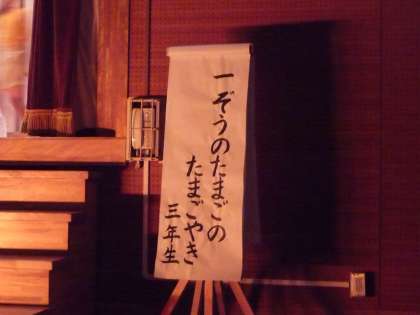 一ぞうのたまごの
たまごやき
三年生